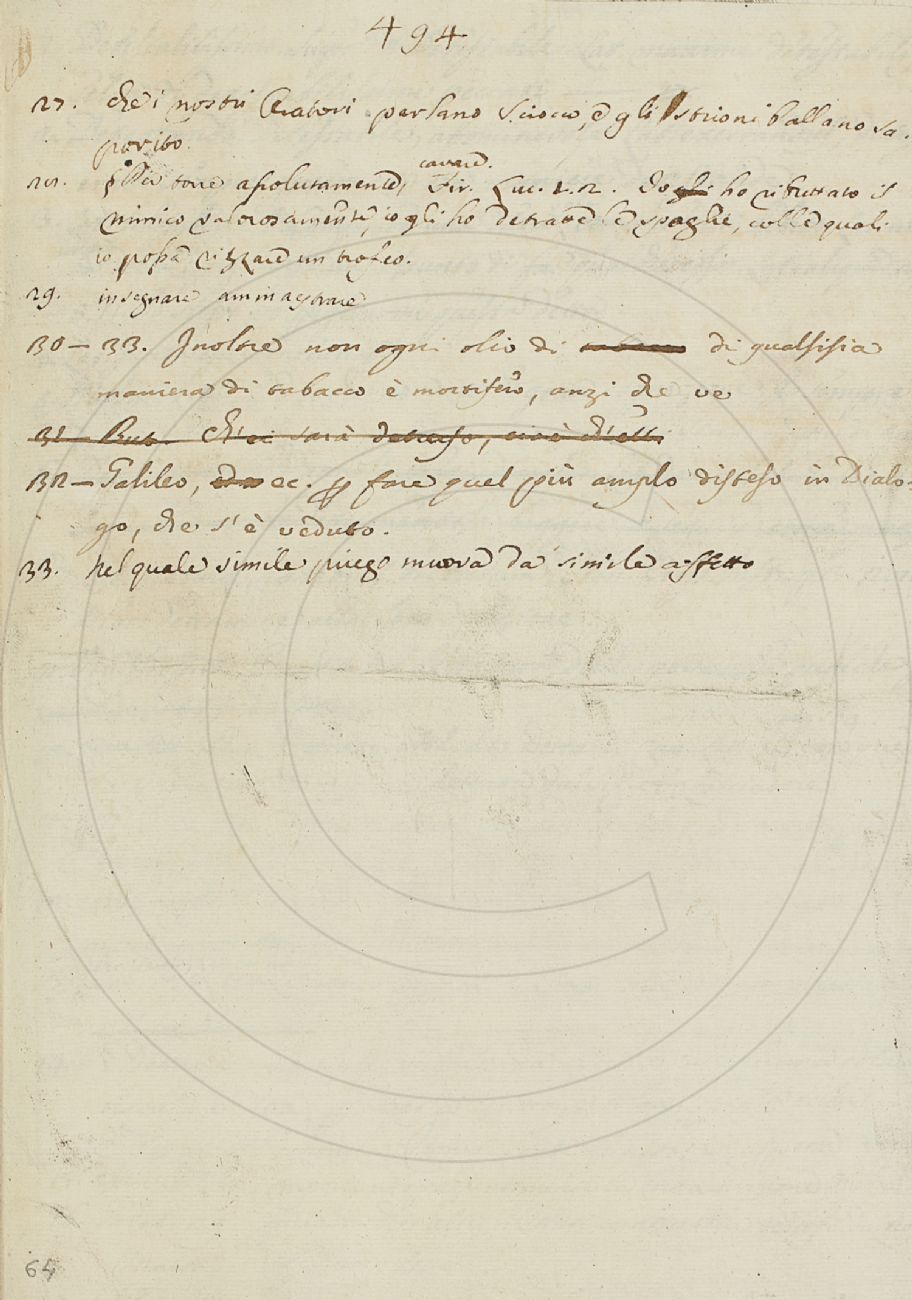 494
27. che i nostri Oratori parlano sciocco, e gli Istrioni ballano sa-
porito.
28. Per torre assolutamente, cavare. Fir. Luc. 2. 2. Io gli ho ributtato il
nimico valorosamente, io gli ho detratte le spoglie, colle quali
io possa rizzare un trofeo.
29. insegnare ammaestrare
30 — 33. Inoltre non ogni olio di tabacco di qualsisia
maniera di tabacco è mortifero, anzi che ve
31 — But. Ch'ei sarà detruso, cioè ch'elli
32 — Galileo, ec. p fare quel più amplo disteso in Dialo-
go, che s'è veduto.
33. nel quale simile priego muova da simile affetto
64